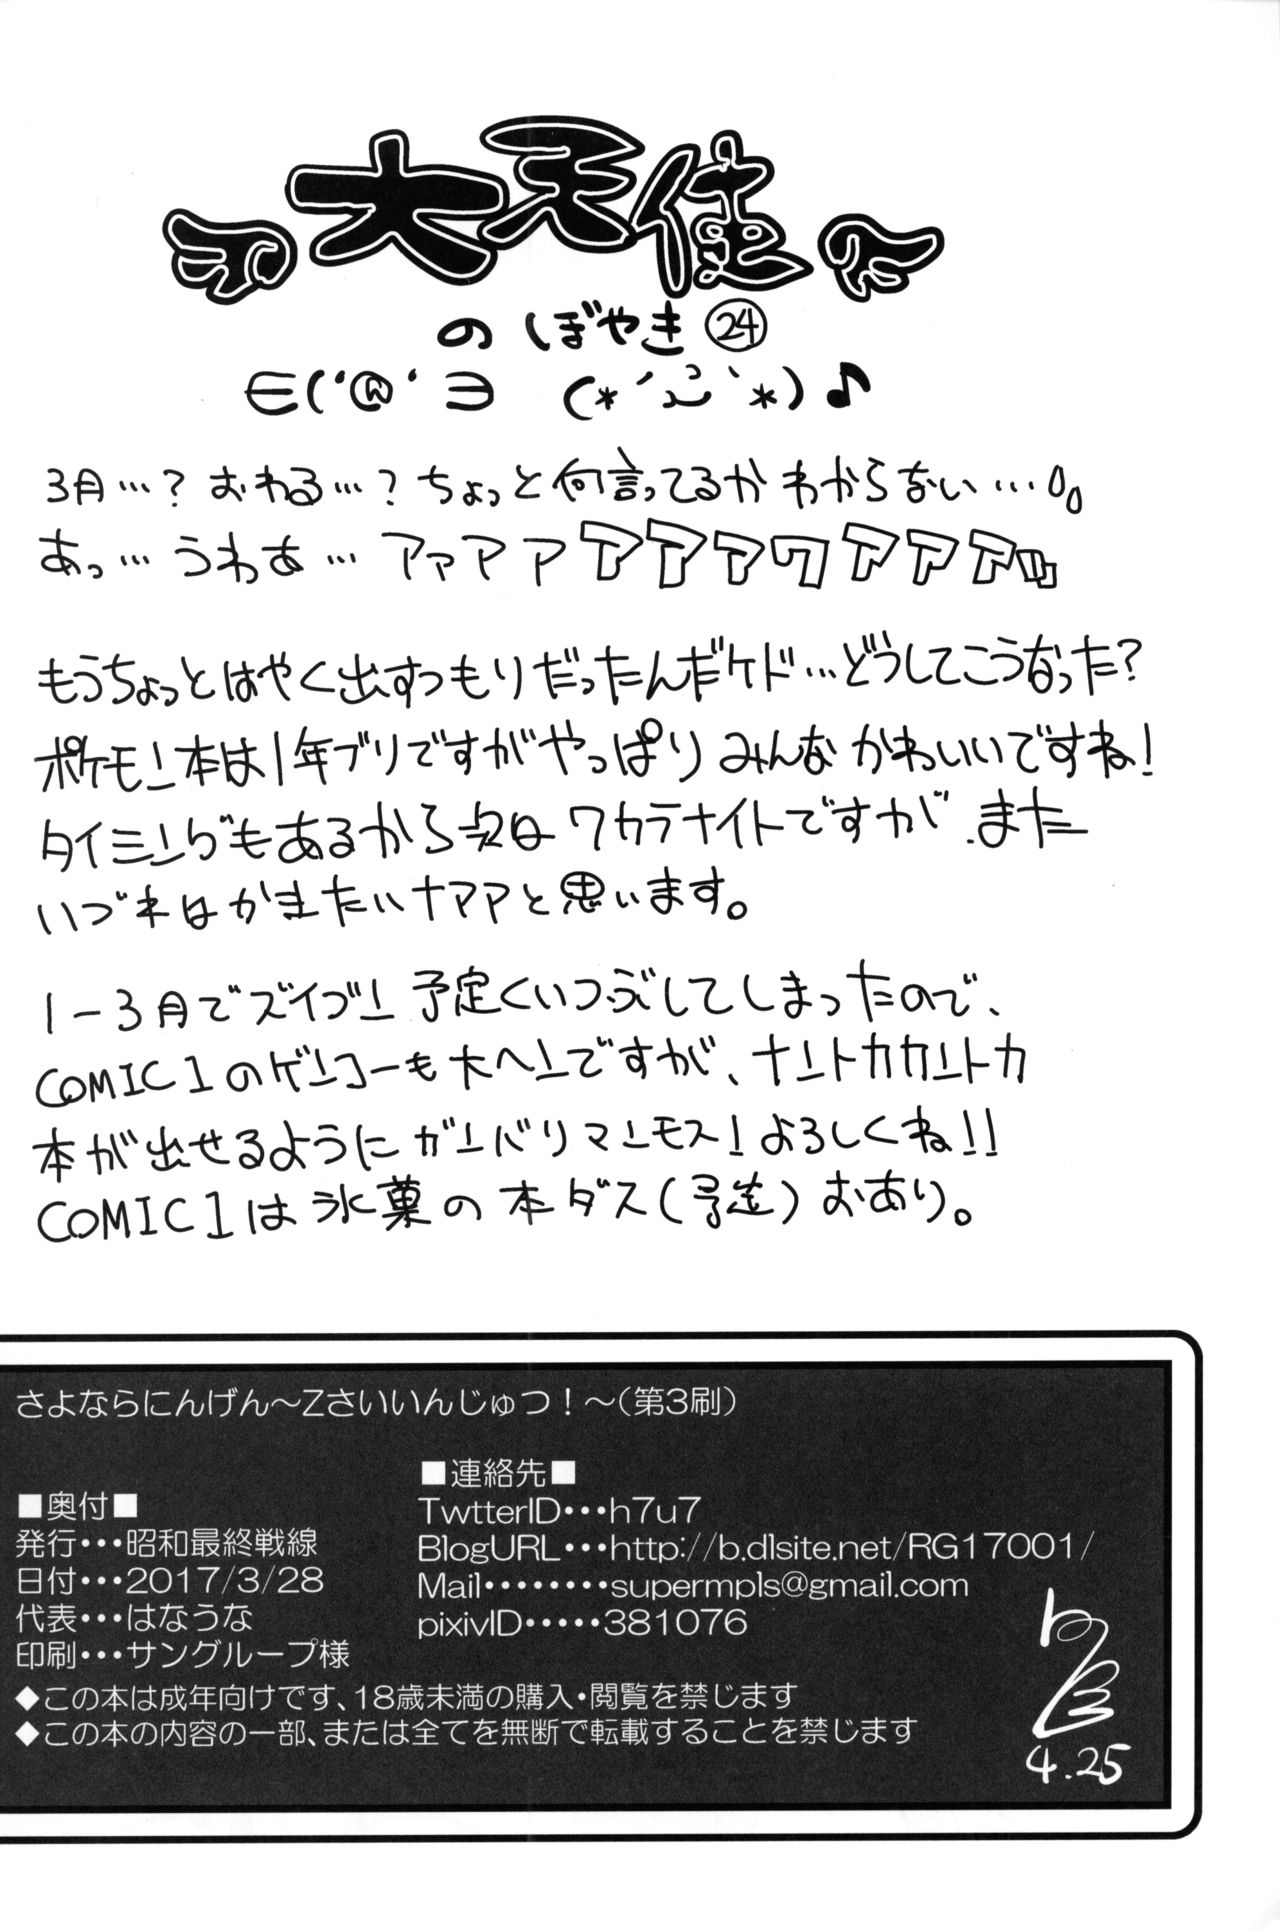 大天使
のぼやき㉔
∈('@'∋ (*´`*)♪
3月…?おわる…?ちょっと何言ってるかわからない…
あっ…うわあ…アァアァアアァワアアアッ
もうちょっとはやく出すつもりだったんだケド…どうしてこうなった?
ポケモン本は1年ブリですがやっぱりみんなかわいいですね!
タイミングもあるから次はワカラナイトですが、また
いづれはかきたいナァァと思います。
1-3月でズイブン予定くいつぶしてしまったので、
COMIC1のゲンコーも大ヘンですが、ナントカカントカ
本が出せるようにガンバリマンモス!よろしくね!!
COMIC1は氷菓の本ダス(予定)おあり。
さよならにんげん〜Zさいいんじゅつ!〜(第3刷)
■奥付■
発行・・・昭和最終戦線
日付・・・2017/3/28
代表・・・はなうな
印刷・・・サングループ様
■連絡先■
TwtterID・・・h7u7
BlogURL・・・http://b.dlsite.net/RG17001/
Mail・・・・・・・・supermpls@gmail.com
pixivID・・・・・381076
◆この本は成年向けです、18歳未満の購入・閲覧を禁じます
◆この本の内容の一部、または全てを無断で転載することを禁じます
4.25